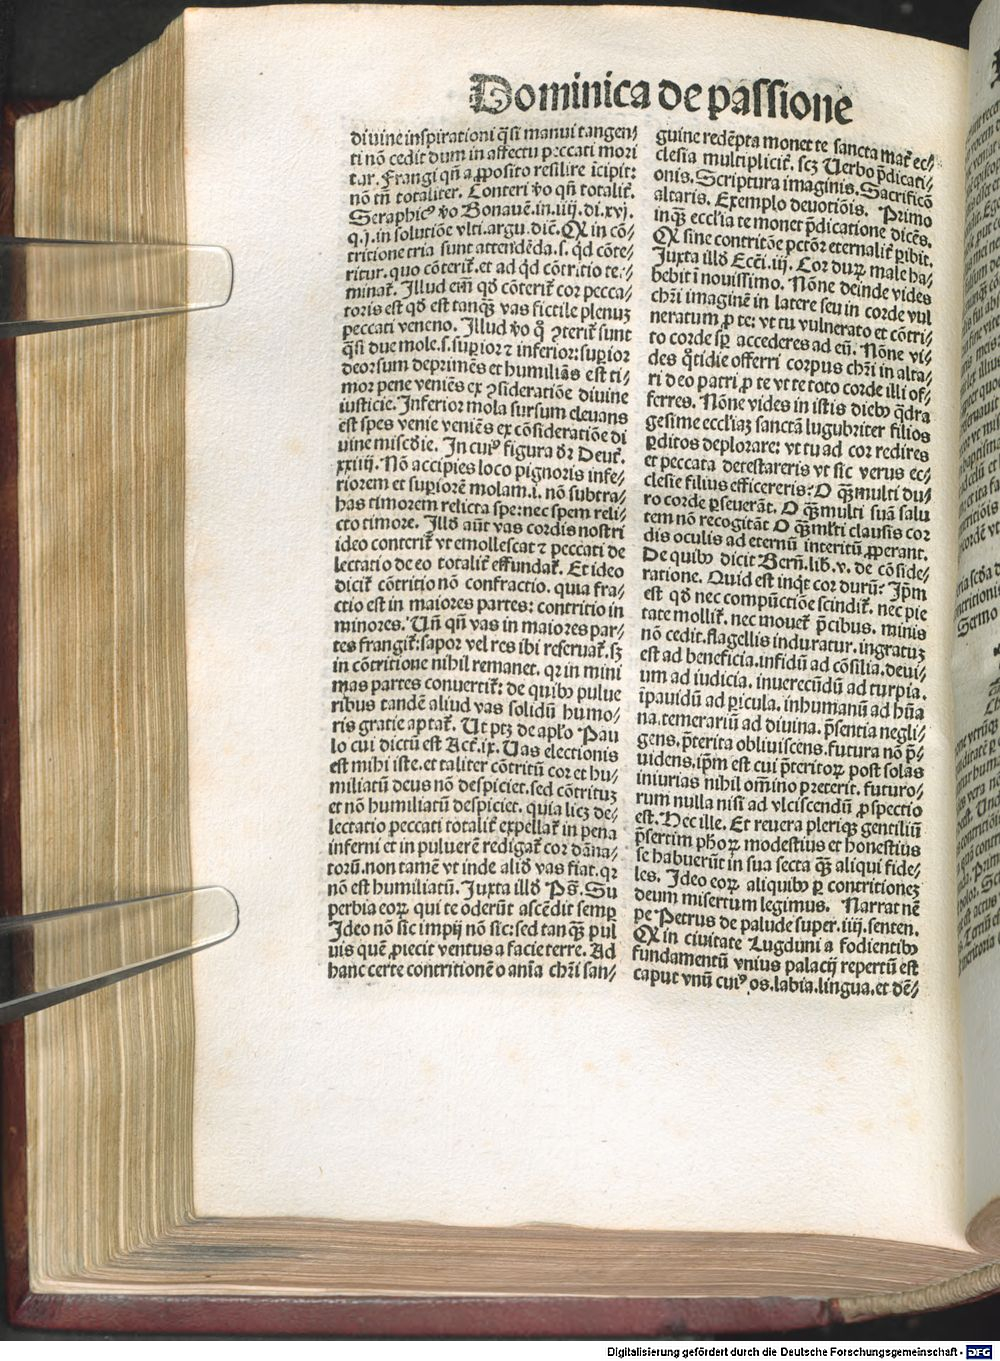 Dominica de passione
diuine inspirationi q̃si manui tangen/
ti nõ cedit dum in affectu peccati mori
tur. Frangi qñ a ꝓposito resilire icipit:
nõ tñ totaliter. Conteri ꝟo qñ totalit̃.
Seraphicꝰ ꝟo Bonauẽ. in. iiij. di. xvj.
q. j. in solutiõe vlti. argu. diẽ. Ꝙ in cõ/
tritione tria sunt attendẽda. s. qd cõte/
ritur. quo cõterit̃. et ad qd cõtritio ter/
minat̃. Illud eiñ qđ cõterit̃ cor pecca/
toris est qđ est tanqꝫ vas fictile plenuꝫ
peccati veneno. Illud ꝟo qͦ ꝯterit̃ sunt
q̃si due mole. s. suꝑior ⁊ inferior: suꝑior
deorsum deprimẽs et humiliãs est ti/
mor pene veniẽs ex ꝯsideratiõe diuine
iusticie. Inferior mola sursum eleuans
est spes venie veniẽs ex cõsideratiõe di
uine miscđie. In cuiꝰ figura dr̃ Deut̃.
xxiiij. Nõ accipies loco pignoris infe/
riorem et suꝑiorẽ molam. i. nõ subtra/
has timorem relicta spe: nec spem reli/
cto timore. Illđ aũt vas cordis nostri
ideo conterit̃ vt emollescat ⁊ peccati de
lectatio de eo totalit̃ effundat̃. Et ideo
dicit̃ cõtritio nõ confractio. quia fra/
ctio est in maiores partes: contritio in
minores. Uñ qñ vas in maiores par/
tes frangit̃: sapor vel res ibi reseruat̃. sꝫ
in cõtritione nihil remanet. qꝛ in mini
mas partes conuertit̃: de quibꝰ pulue
ribus tandẽ aliud vas solidũ humo/
ris gratie aptat̃. Ut ptꝫ de apło Pau
lo cui dictũ est Act̃. ix. Uas electionis
est mihi iste. et taliter cõtritũ cor et hu/
miliatũ deus nõ despiciet. sed cõtrituꝫ
et nõ humiliatũ despiciet. quia licꝫ de/
lectatio peccati totalit̃ expellat̃ in pena
inferni et in puluerẽ redigat̃ cor dãna/
torũ. non tamẽ vt inde aliđ vas fiat. qꝛ
nõ est humiliatũ. Iuxta illđ Pš. Su
perbia eoꝝ qui te oderũt ascẽdit semꝑ
Ideo nõ sic impij nõ sic: sed tanqꝫ pul
uis quẽ ꝓiecit ventus a facie terre. Ad
hanc certe contritionẽ o aña chr̃i san/
guine redẽpta monet te sancta mat̃ ec/
clesia multiplicit̃. scꝫ Uerbo p̃dicati/
onis. Scriptura imaginis. Sacrificõ
altaris. Exemplo deuotiõis. Primo
inqꝫ eccłia te monet p̃dicatione dicẽs.
Ꝙ sine contritõe pctõr eternalit̃ ꝑibit.
Iuxta illđ Ecci. iij. Cor duꝝ male ha/
bebit ĩ nouissimo. Nõne deinde vides
chr̃i imaginẽ in latere seu in corde vul
neratum ꝓ te: vt tu vulnerato et cõtri/
to corde sꝑ accederes ad eũ. Nõne vi/
des q̃tidie offerri corpus chr̃i in alta/
ri deo patri ꝓ te vt te toto corde illi of/
ferres. Nõne vides in istis diebꝰ q̃dra
gesime eccłiaꝫ sanctã lugubriter filios
ꝑditos deplorare: vt tu ad cor redires
et peccata detestareris vt sic verus ec/
clesie filius efficereris? O qꝫ̃ multi du/
ro corde ꝑseuerãt. O qꝫ̃ multi suã salu
tem nõ recogitãt O qꝫ̃ młti clausis cor
dis oculis ad eternũ interitũ ꝓperant.
De quibꝰ dicit Berñ. lib. v. de cõside/
ratione. Quid est inq̃t cor durũ? Ip̃m
est qđ nec compũctiõe scindit̃. nec pie
tate mollit̃. nec mouet̃ p̃cibus. minis
nõ cedit. flagellis induratur. ingratuꝫ
est ad beneficia. infidũ ad cõsilia. deui/
um ad iudicia. inuerecũdũ ad turpia.
ĩpauidũ ad ꝑicula. inhumanũ ad hũa
na. temerariũ ad diuina. p̃sentia negli/
gens. p̃terita obliuiscens. futura nõ p̃/
uidens. ip̃m est cui p̃teritoꝝ post solas
iniurias nihil om̃ino preterit. futuro/
rum nulla nisi ad vlciscendũ ꝓspectio
est. Hec ille. Et reuera pleriqꝫ gentiliũ
p̃sertim pħoꝝ modestius et honestius
se habuerũt in sua secta qꝫ̃ aliqui fide/
les. Ideo eoꝝ aliquibꝰ ꝑ contritioneꝫ
deum misertum legimus. Narrat nẽ
pe Petrus de palude super. iiij. senten.
Ꝙ in ciuitate Lugduni a fodientibꝰ
fundamentũ vnius palacij repertũ est
caput vnũ cuiꝰ os. labia. lingua. et dẽ/
Digitalisierung gefördert durch die Deutsche Forschungsgemeinschaft - DFG